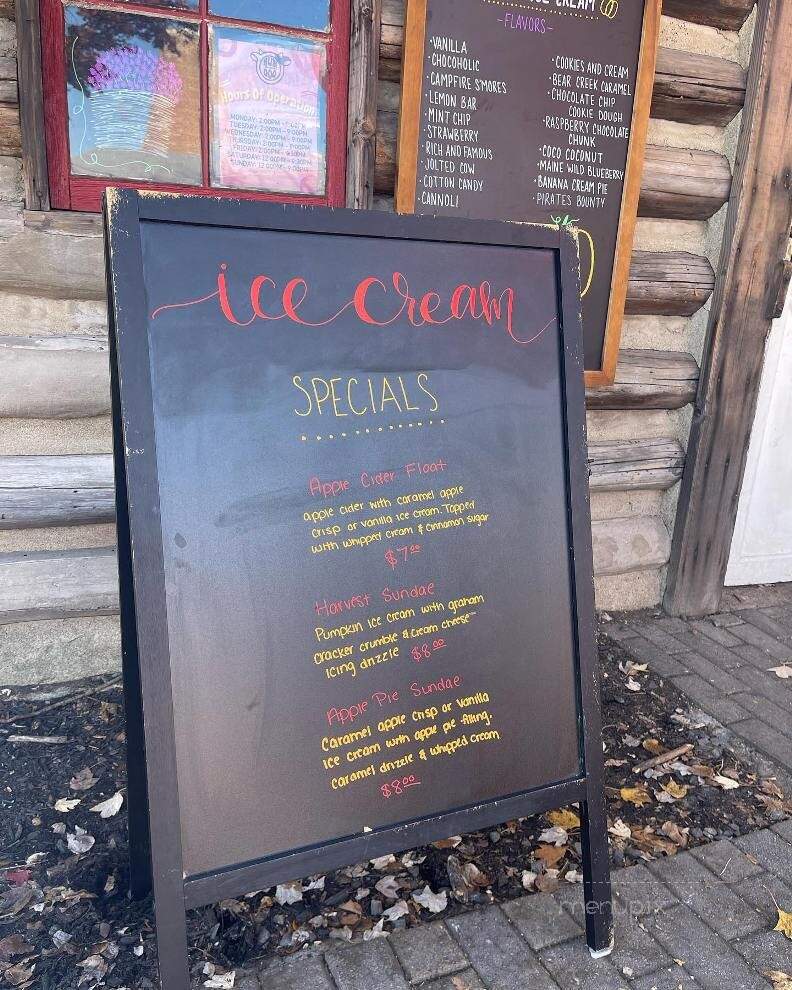 ICE CREAM
-FLAVORS-
·VANILLA
·CHOCOHOLIC
·CAMPFIRE S'MORES
·LEMON BAR
·MINT CHIP
·STRAWBERRY
·RICH AND FAMOUS
·JOLTED COW
·COTTON CANDY
·CANNOLI
·COOKIES AND CREAM
·BEAR CREEK CARAMEL
·CHOCOLATE CHIP
COOKIE DOUGH
·RASPBERRY CHOCOLATE
CHUNK
·COCO COCONUT
·MAINE WILD BLUEBERRY
·BANANA CREAM PIE
·PIRATES BOUNTY
Hours Of Operation
MONDAY: 2:00PM -
TUESDAY: 2:00PM - 9:00PM
WEDNESDAY: 2:00PM - 9:00PM
THURSDAY: 2:00PM -
FRIDAY: 2:00PM -
SATURDAY: 12:00PM -
SUNDAY: 12:00PM - 9:00PM
ice cream
SPECIALS
Apple Cider Float
apple cider with caramel apple
crisp or vanilla ice cream. Topped
with whipped cream & cinnamon sugar
$7.00
Harvest Sundae
Pumpkin ice cream with graham
cracker crumble & cream cheese
icing drizzle $8.00
Apple Pie Sundae
Caramel apple crisp or vanilla
ice cream with apple pie filling,
caramel drizzle & whipped cream
$8.00
menupix